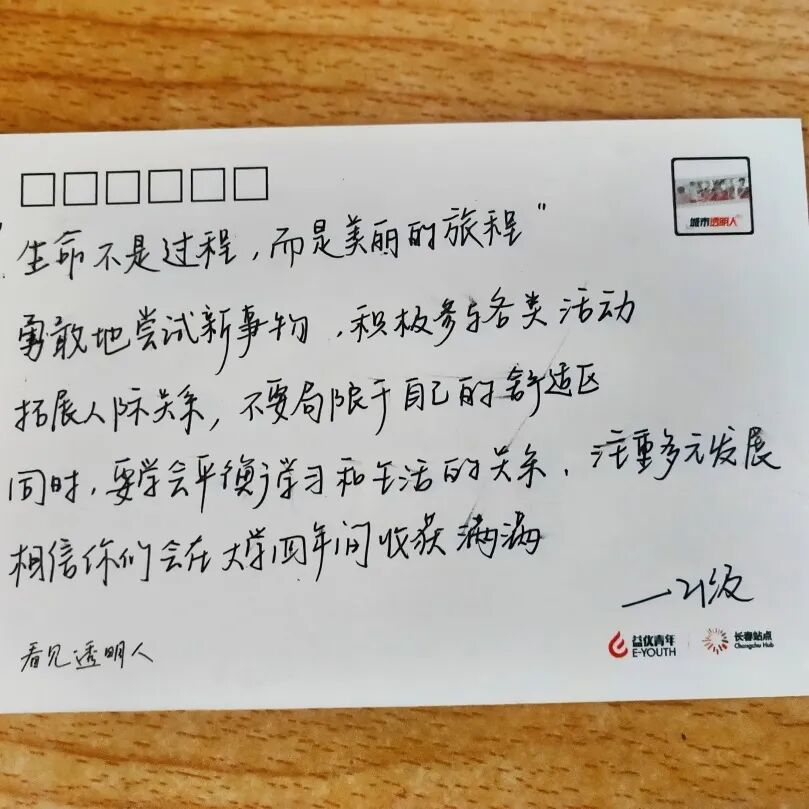 城市透明人
"生命不是过程，而是美丽的旅程"
勇敢地尝试新事物，积极参与各类活动
拓展人际关系，不要局限于自己的舒适区
同时，要学会平衡学习和生活的关系，注重多元发展
相信你们会在大学四年间收获满满
—21级
看见透明人
益优青年
E-YOUTH
长春站点
Changchun Hub